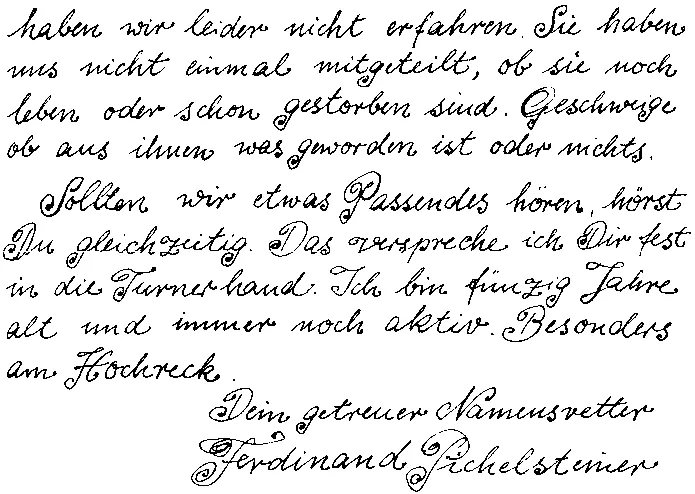 haben wir leider nicht erfahren. Sie haben
uns nicht einmal mitgeteilt, ob sie noch
leben oder schon gestorben sind. Geschweige
ob aus ihnen was geworden ist oder nichts.
Sollten wir etwas Passendes hören, hörst
Du gleichzeitig. Das verspreche ich Dir fest
in die Turnerhand. Ich bin fünzig Jahre
alt und immer noch aktiv. Besonders
am Hochreck.
Dein getreuer Namensvetter
Ferdinand Pichelsteiner